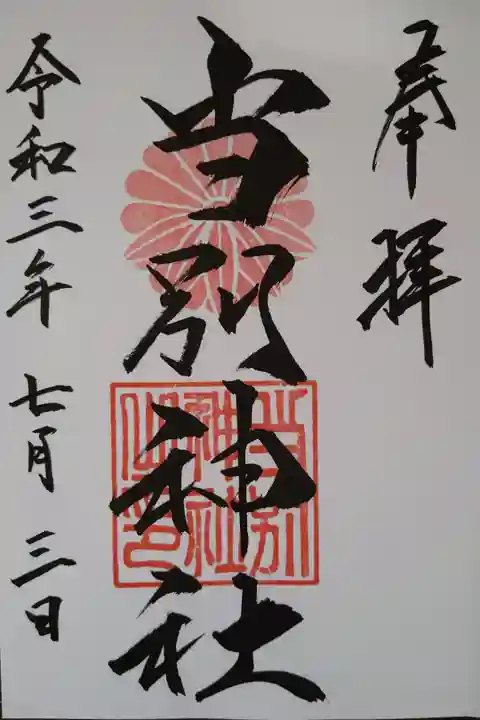 奉拝
当別神社
当別
神社
之印
令和三年 七月 三日